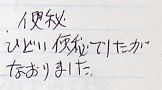 ・便秘
ひどい便秘でしたが
なおりました。